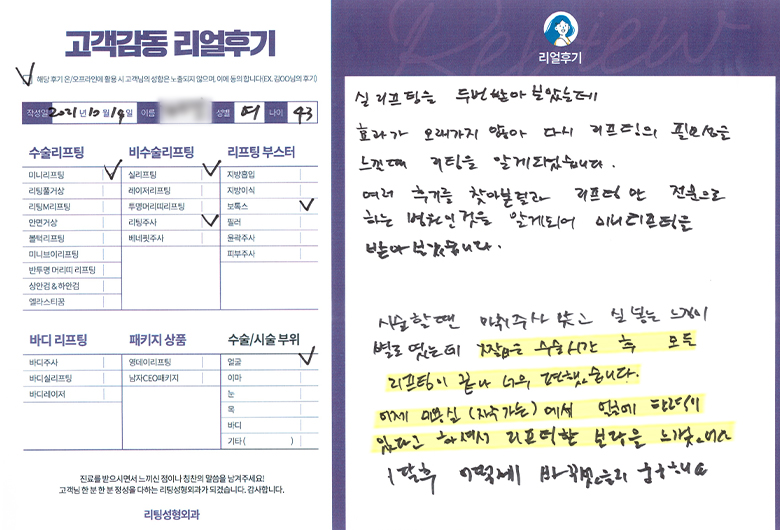 고객감동 리얼후기
해당 후기 온/오프라인에 활용 시 고객님의 성함은 노출되지 않으며, 이에 동의합니다(EX. 김OO님의 후기)
작성일 2021년 10월 19일 이름 성별 여 나이 43
수술리프팅
미니리프팅
리팅풀거상
리팅M리프팅
안면거상
볼턱리프팅
미니브이리프팅
반투명 머리띠 리프팅
상안검 & 하안검
엘라스티꿈
비수술리프팅
실리프팅
레이저리프팅
투명머리띠리프팅
리팅주사
베네핏주사
리프팅 부스터
지방흡입
지방이식
보톡스
필러
윤곽주사
피부주사
바디 리프팅
바디주사
바디실리프팅
바디레이저
패키지 상품
영데이리프팅
남자CEO패키지
수술/시술 부위
얼굴
이마
눈
목
바디
기타 ( )
진료를 받으시면서 느끼신 점이나 칭찬의 말씀을 남겨주세요!
고객님 한 분 한 분 정성을 다하는 리팅성형외과가 되겠습니다. 감사합니다.
리팅성형외과
Review
리얼후기
실 리프팅을 두번 받아 보았는데
효과가 오래가지 않아 다시 리프팅의 필요성을
느낄때 리팅을 알게되었습니다.
여러 후기를 찾아보던중 리프팅 만 전문으로
하는 병원인것을 알게되어 미니리프팅을
받아 보았습니다.
시술할땐 마취주사 맞고 실 넣는 느낌이
별로 였는데 짧은 수술시간 후 모든
리프팅이 끝나 너무 편했습니다.
어제 미용실 (자주가는) 에서 얼굴에 탄력이
있다고 하셔서 리프팅한 보람을 느꼈어요
1달후 어떻게 바뀌었을지 궁금해요